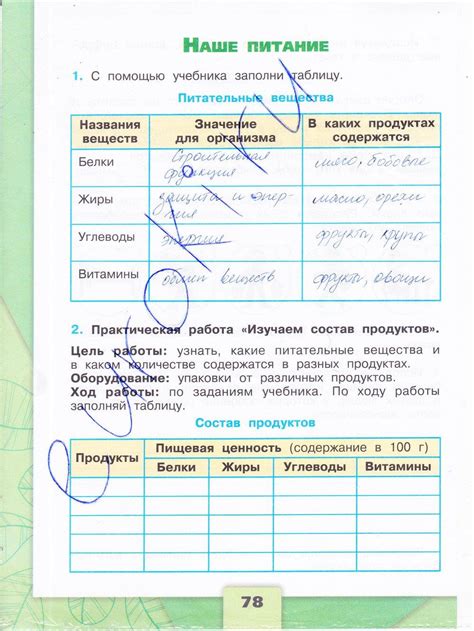 НАШЕ ПИТАНИЕ
1. С помощью учебника заполни таблицу.
Питательные вещества
Названия веществ | Значение для организма | В каких продуктах содержатся
Белки | Строительная функция | мясо, бобовые
Жиры | защита и энергия | масло, орехи
Углеводы | энергия | фрукты, крупы
Витамины | обмен веществ | фрукты, овощи
2. Практическая работа «Изучаем состав продуктов».
Цель работы: узнать, какие питательные вещества и
в каком количестве содержатся в разных продуктах.
Оборудование: упаковки от различных продуктов.
Ход работы: по заданиям учебника. По ходу работы
заполняй таблицу.
Состав продуктов
Продукты | Пищевая ценность (содержание в 100 г)
Белки | Жиры | Углеводы | Витамины
78